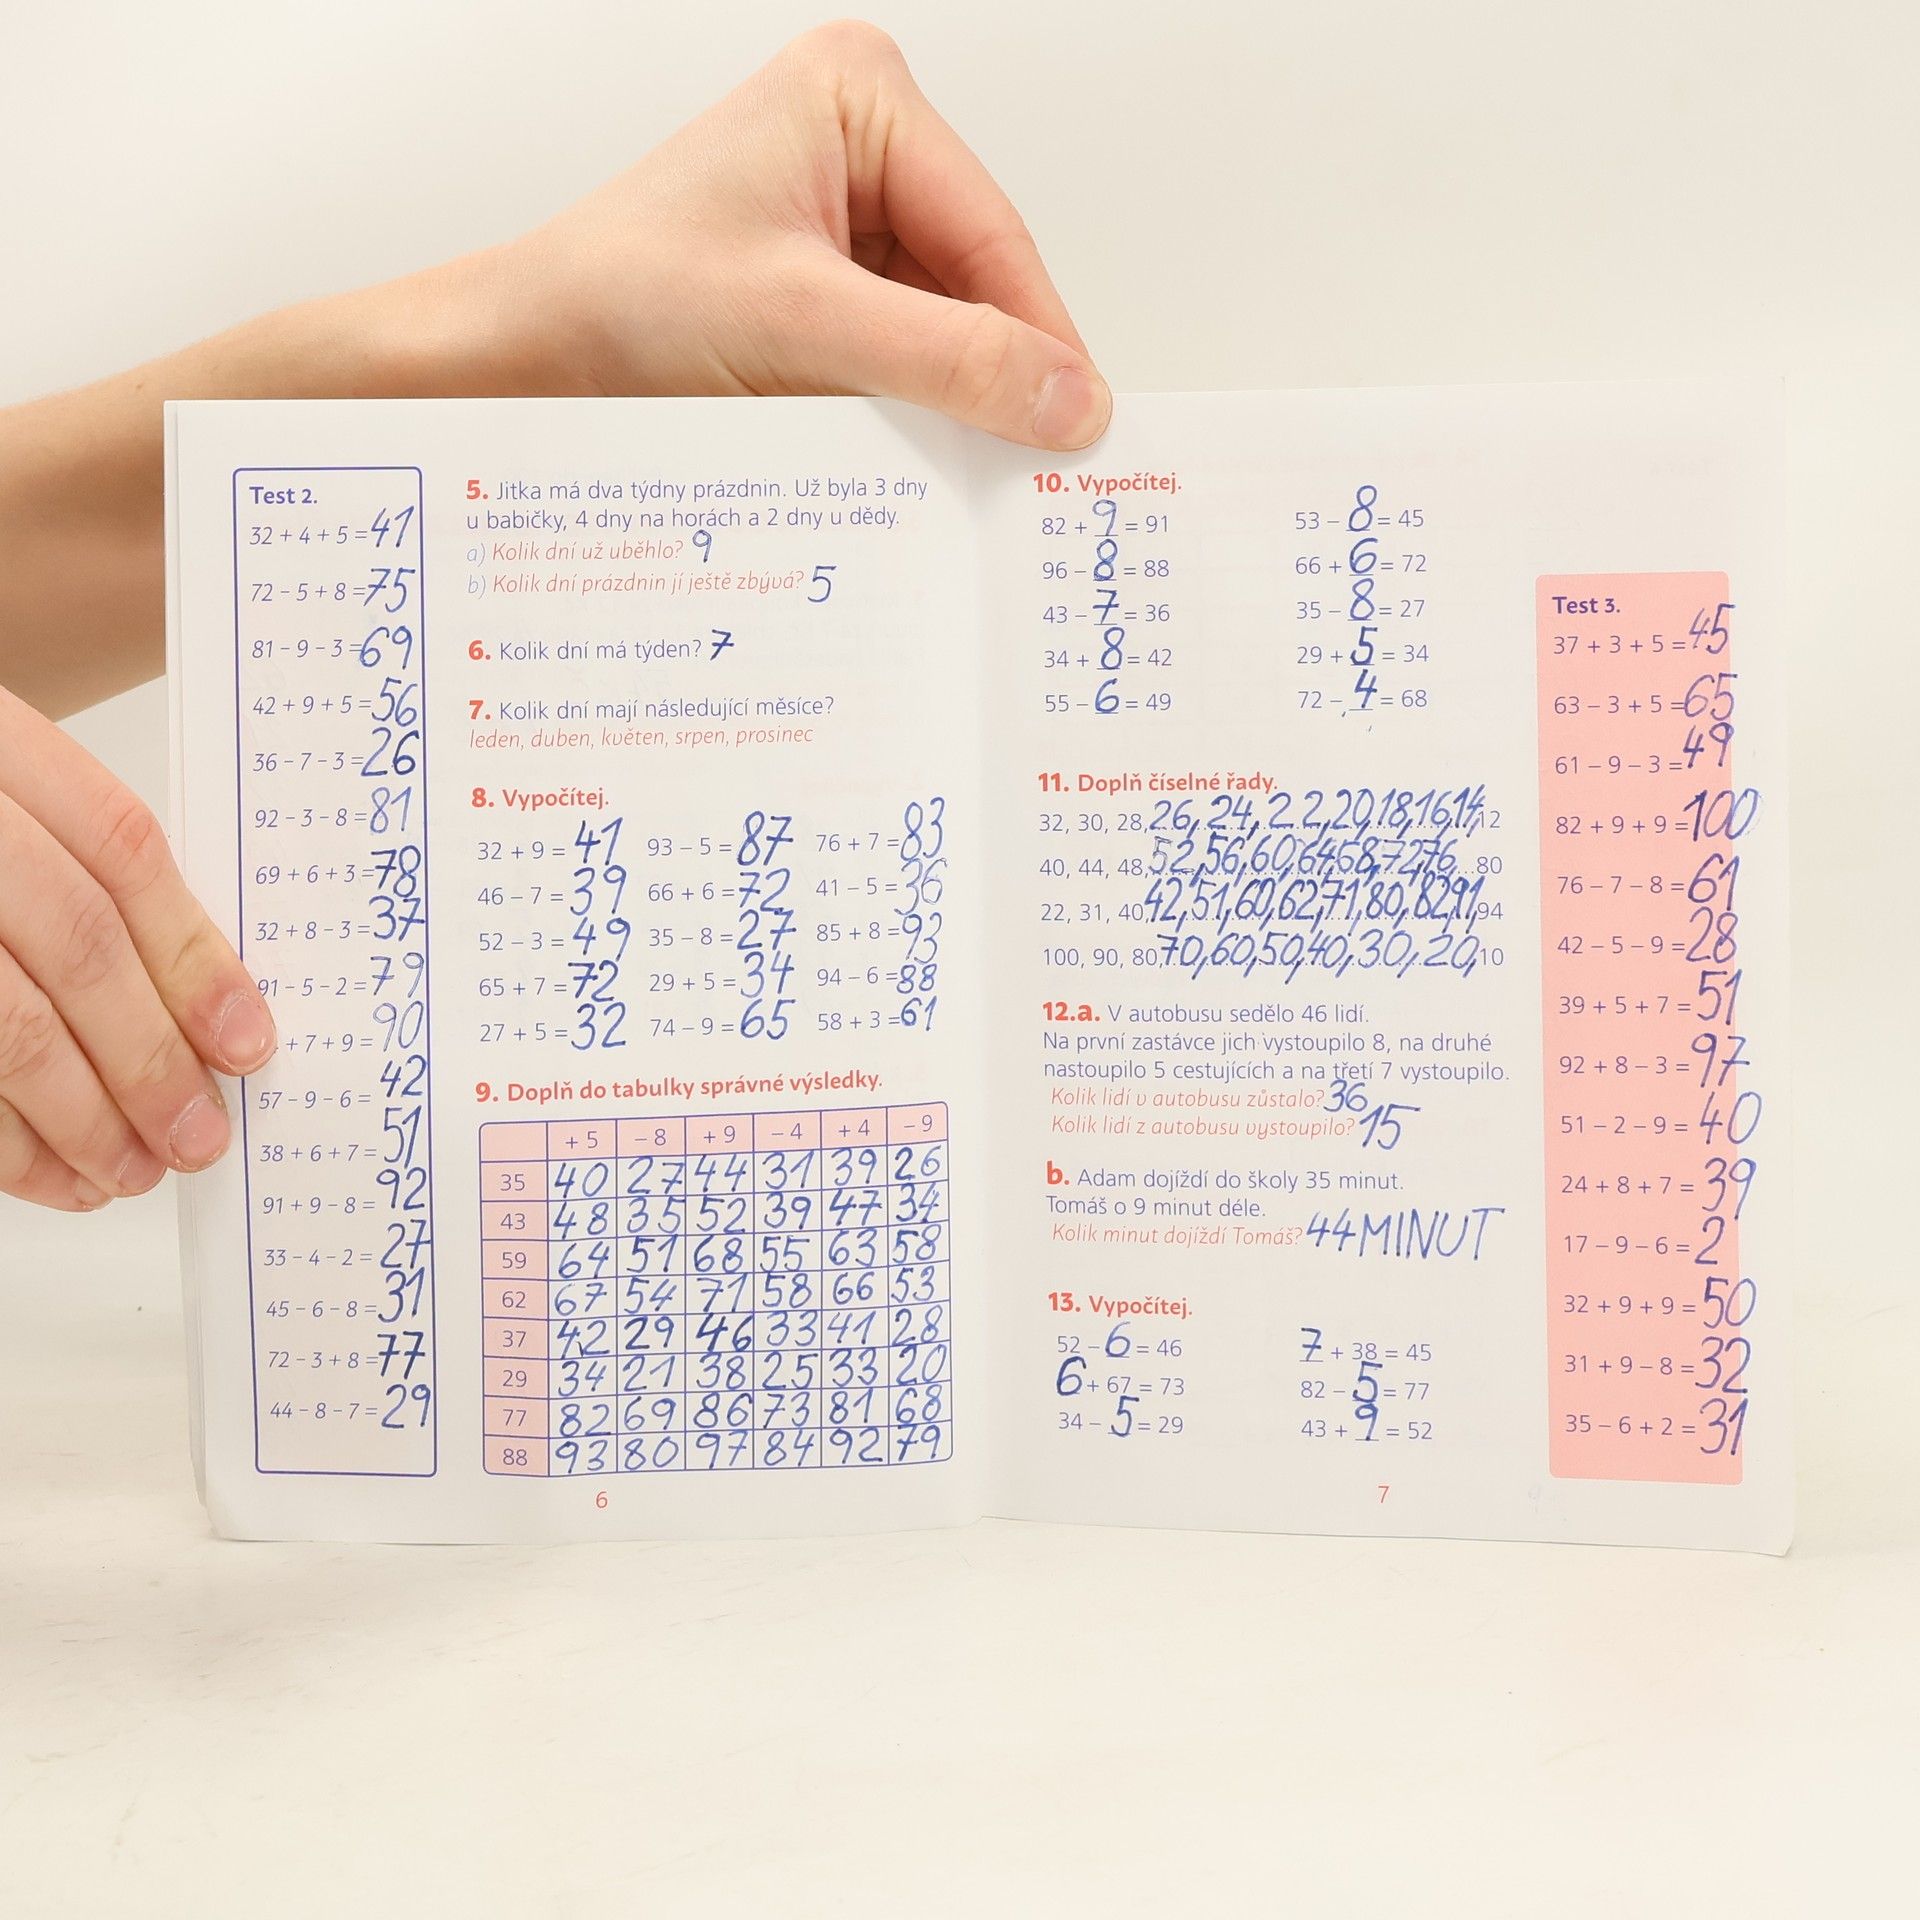 Test 2.
32 + 4 + 5 = 41
72 – 5 + 8 = 75
81 – 9 – 3 = 69
42 + 9 + 5 = 56
36 – 7 – 3 = 26
92 – 3 – 8 = 81
69 + 6 + 3 = 78
32 + 8 – 3 = 37
91 – 5 – 2 = 79
+ 7 + 9 = 90
57 – 9 – 6 = 42
38 + 6 + 7 = 51
91 + 9 – 8 = 92
33 – 4 – 2 = 27
45 – 6 – 8 = 31
72 – 3 + 8 = 77
44 – 8 – 7 = 29
5. Jitka má dva týdny prázdnin. Už byla 3 dny
u babičky, 4 dny na horách a 2 dny u dědy.
a) Kolik dní už uběhlo? 9
b) Kolik dní prázdnin jí ještě zbývá? 5
6. Kolik dní má týden? 7
7. Kolik dní mají následující měsíce?
leden, duben, květen, srpen, prosinec
8. Vypočítej.
32 + 9 = 41 93 – 5 = 87 76 + 7 = 83
46 – 7 = 39 66 + 6 = 72 41 – 5 = 36
52 – 3 = 49 35 – 8 = 27 85 + 8 = 93
65 + 7 = 72 29 + 5 = 34 94 – 6 = 88
27 + 5 = 32 74 – 9 = 65 58 + 3 = 61
9. Doplň do tabulky správné výsledky.
+ 5 – 8 + 9 – 4 + 4 – 9
35 40 27 44 31 39 26
43 48 35 52 39 47 34
59 64 51 68 55 63 58
62 67 54 71 58 66 53
37 42 29 46 33 41 28
29 34 21 38 25 33 20
77 82 69 86 73 81 68
88 93 80 97 84 92 79
6
10. Vypočítej.
82 + 9 = 91 53 – 8 = 45
96 – 8 = 88 66 + 6 = 72
43 – 7 = 36 35 – 8 = 27
34 + 8 = 42 29 + 5 = 34
55 – 6 = 49 72 – 4 = 68
11. Doplň číselné řady.
32, 30, 28, 26, 24, 22, 20, 18, 16, 14, 12
40, 44, 48, 52, 56, 60, 64, 68, 72, 76, 80
22, 31, 40, 42, 51, 60, 62, 71, 80, 82 91, 94
100, 90, 80, 70, 60, 50, 40, 30, 20, 10
12.a. V autobusu sedělo 46 lidí.
Na první zastávce jich vystoupilo 8, na druhé
nastoupilo 5 cestujících a na třetí 7 vystoupilo.
Kolik lidí v autobusu zůstalo? 36
Kolik lidí z autobusu vystoupilo? 15
b. Adam dojíždí do školy 35 minut.
Tomáš o 9 minut déle.
Kolik minut dojíždí Tomáš? 44 MINUT
13. Vypočítej.
52 – 6 = 46 7 + 38 = 45
6 + 67 = 73 82 – 5 = 77
34 – 5 = 29 43 + 9 = 52
7
Test 3.
37 + 3 + 5 = 45
63 – 3 + 5 = 65
61 – 9 – 3 = 49
82 + 9 + 9 = 100
76 – 7 – 8 = 61
42 – 5 – 9 = 28
39 + 5 + 7 = 51
92 + 8 – 3 = 97
51 – 2 – 9 = 40
24 + 8 + 7 = 39
17 – 9 – 6 = 2
32 + 9 + 9 = 50
31 + 9 – 8 = 32
35 – 6 + 2 = 31